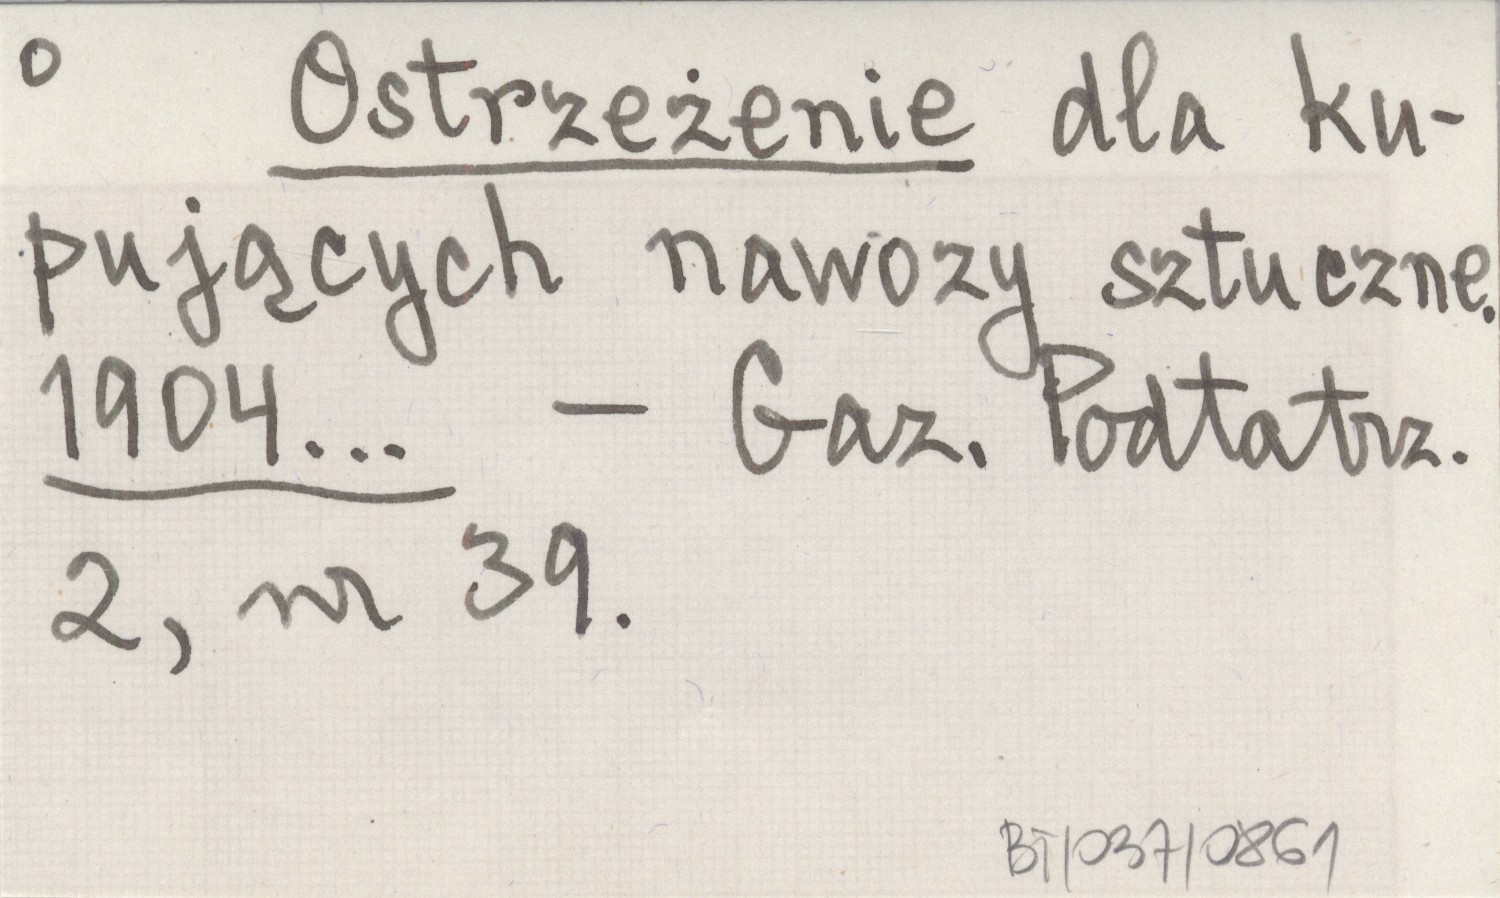 o Ostrzeżenie dla ku-
pujących nawozy sztuczne.
1904... - Gaz. Podtatrz.
2, nr 39.
BT/037/0861